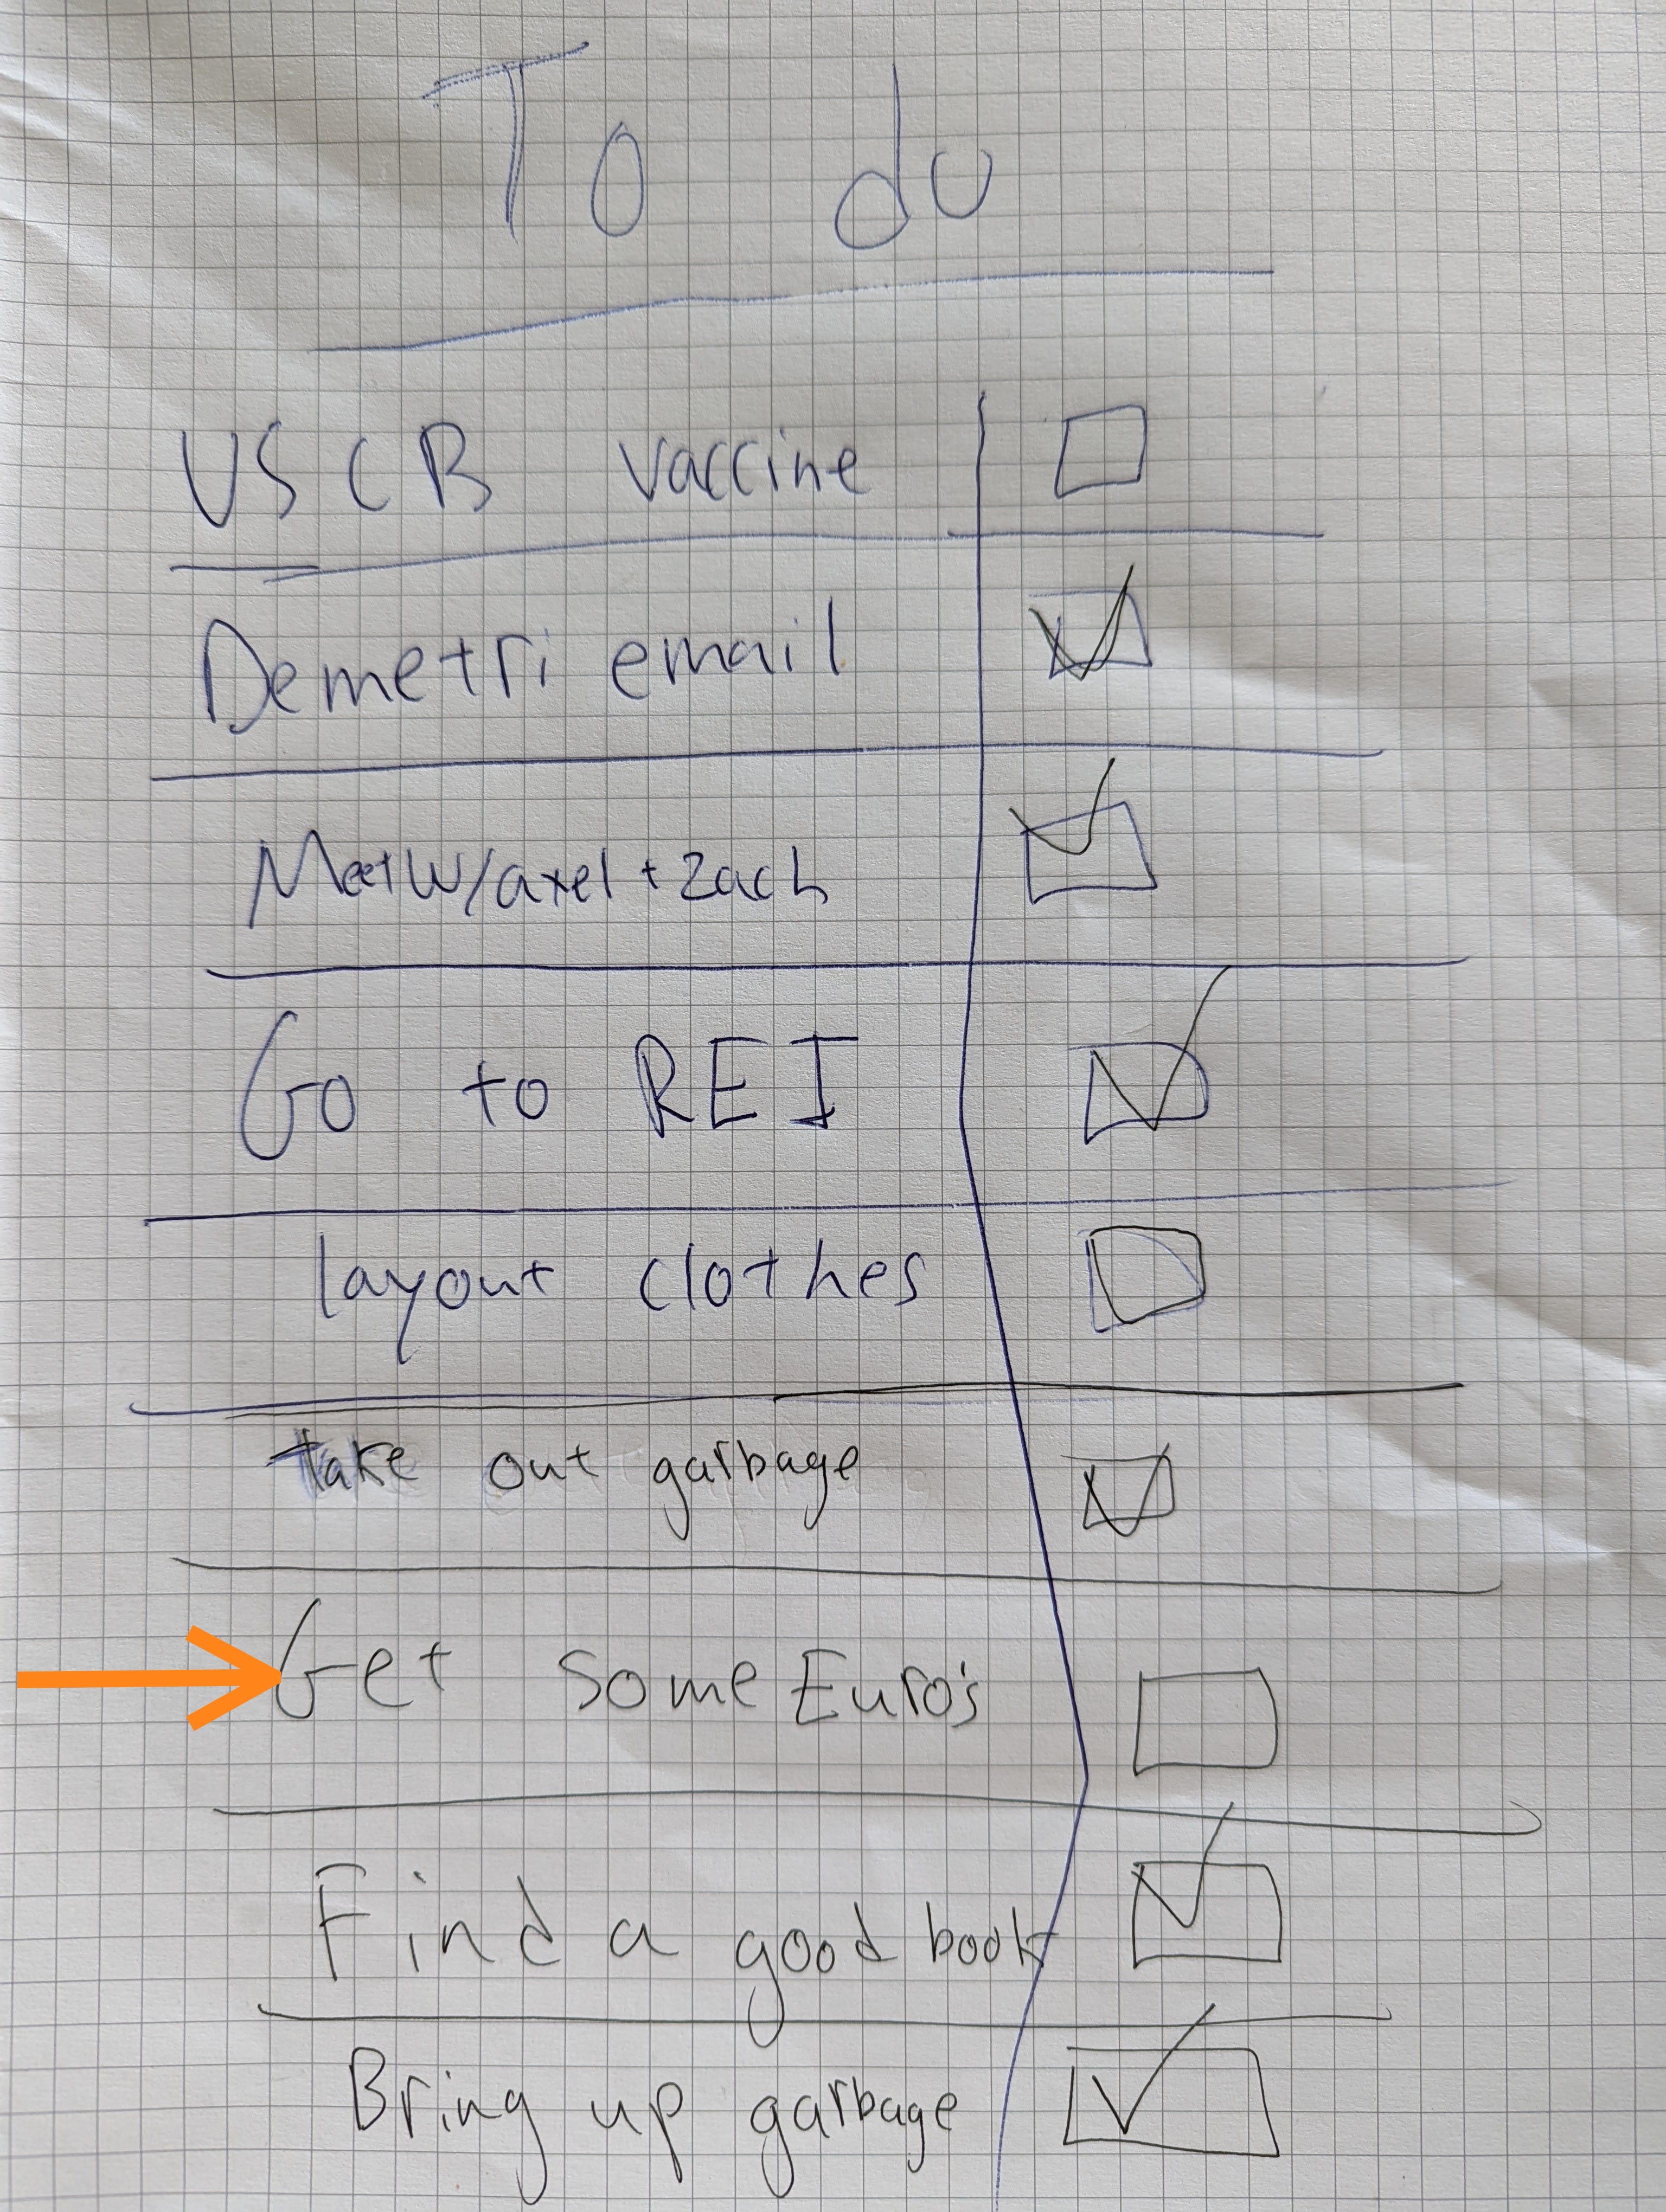 To do
USCB vaccine
Demetri email
Meet w/axel + Zach
Go to REI
layout clothes
take out garbage
Get some Euro's
Find a good book
Bring up garbage